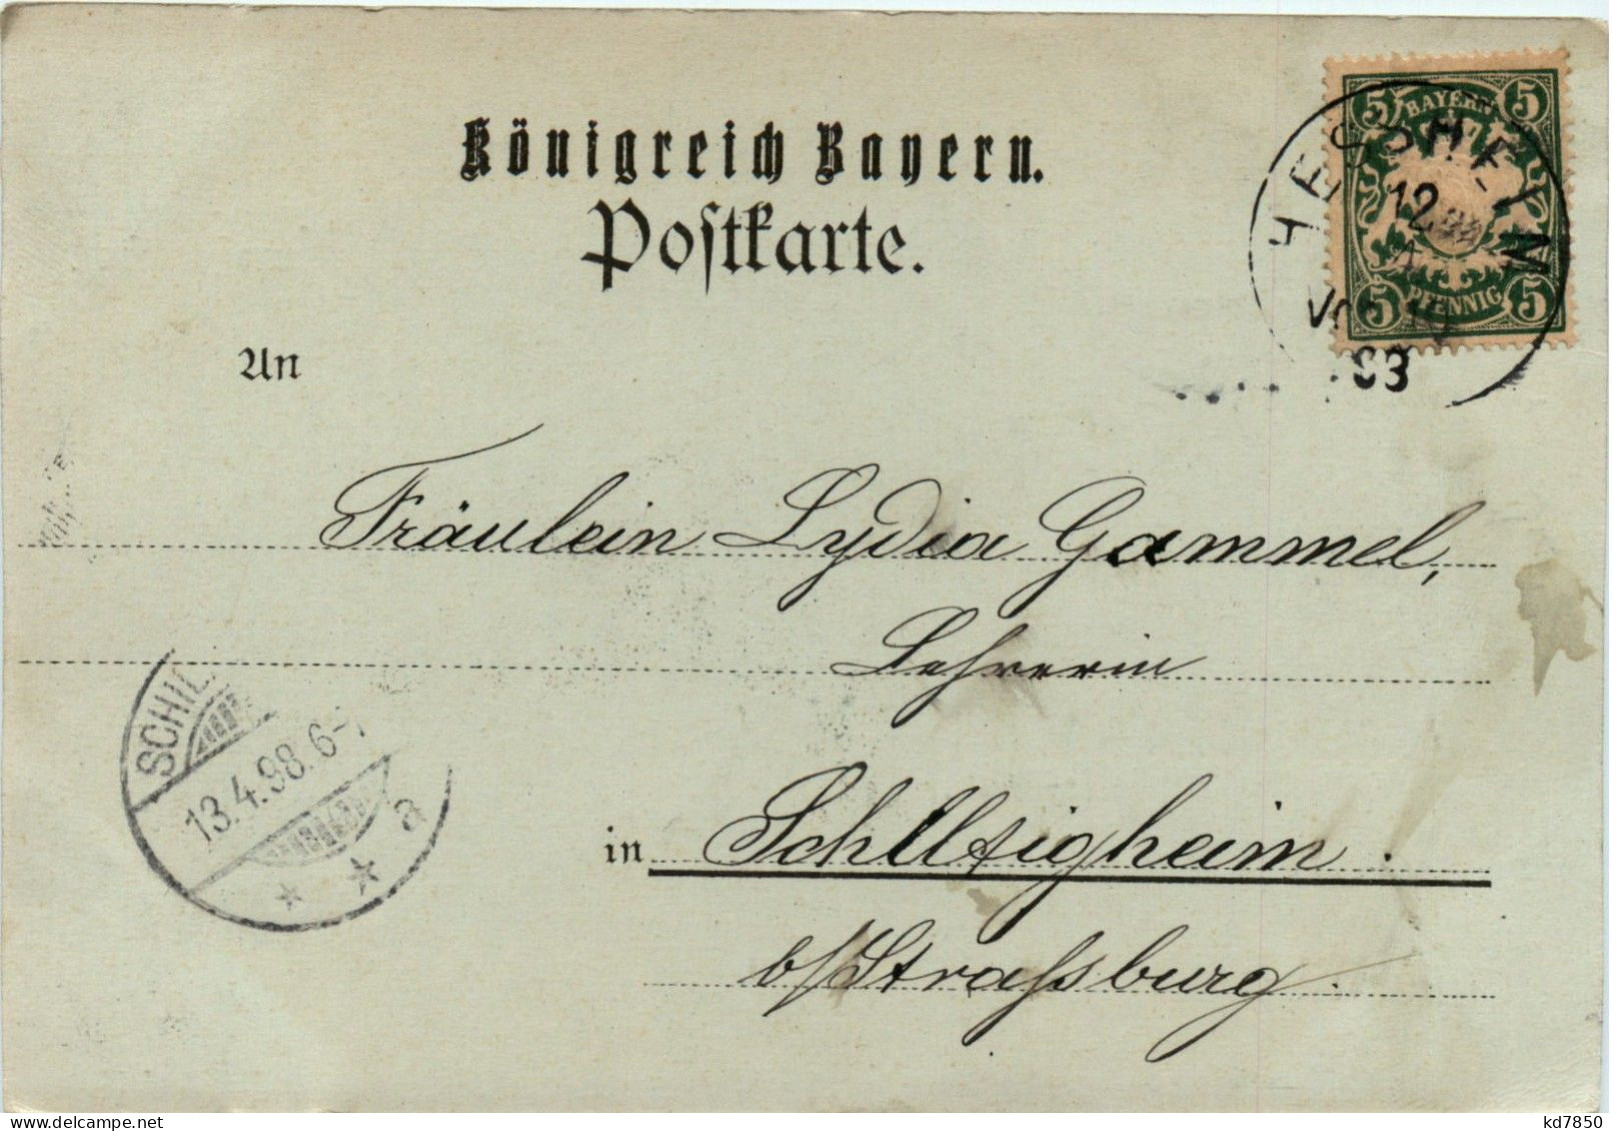 Königreich Bayern.
Postkarte.
5 BAYERN 5
5 PFENNIG 5
HESSHEIM
12
4
98
An
Fräulein Lydia Gammel,
Lehrerin
in Schiltigheim.
b/Straßburg.
SCHIL
13.4.98.6-7
* * a
delcampe.net
kd7850